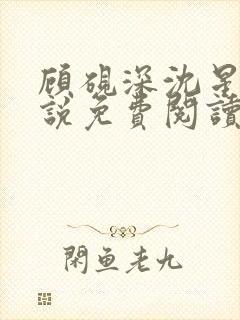 顾砚深沈星
說免費閱讀
閑鱼老九